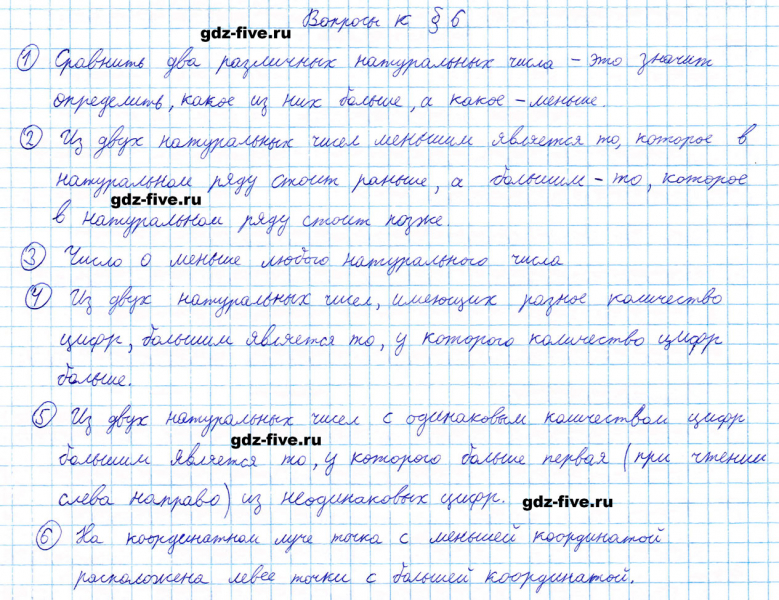 Вопросы к § 6
gdz-five.ru
1 Сравнить два различных натуральных числа – это значит
определить, какое из них больше, а какое – меньше.
2 Из двух натуральных чисел меньшим является то, которое в
натуральном ряду стоит раньше, а большим – то, которое
gdz-five.ru
в натуральном ряду стоит позже.
3 Число 0 меньше любого натурального числа
4 Из двух натуральных чисел, имеющих разное количество
цифр, большим является то, у которого количество цифр
больше.
5 Из двух натуральных чисел с одинаковым количеством цифр
gdz-five.ru
большим является то, у которого больше первая (при чтении
слева направо) из неодинаковых цифр.
gdz-five.ru
6 На координатном луче точка с меньшей координатой
расположена левее точки с большей координатой.